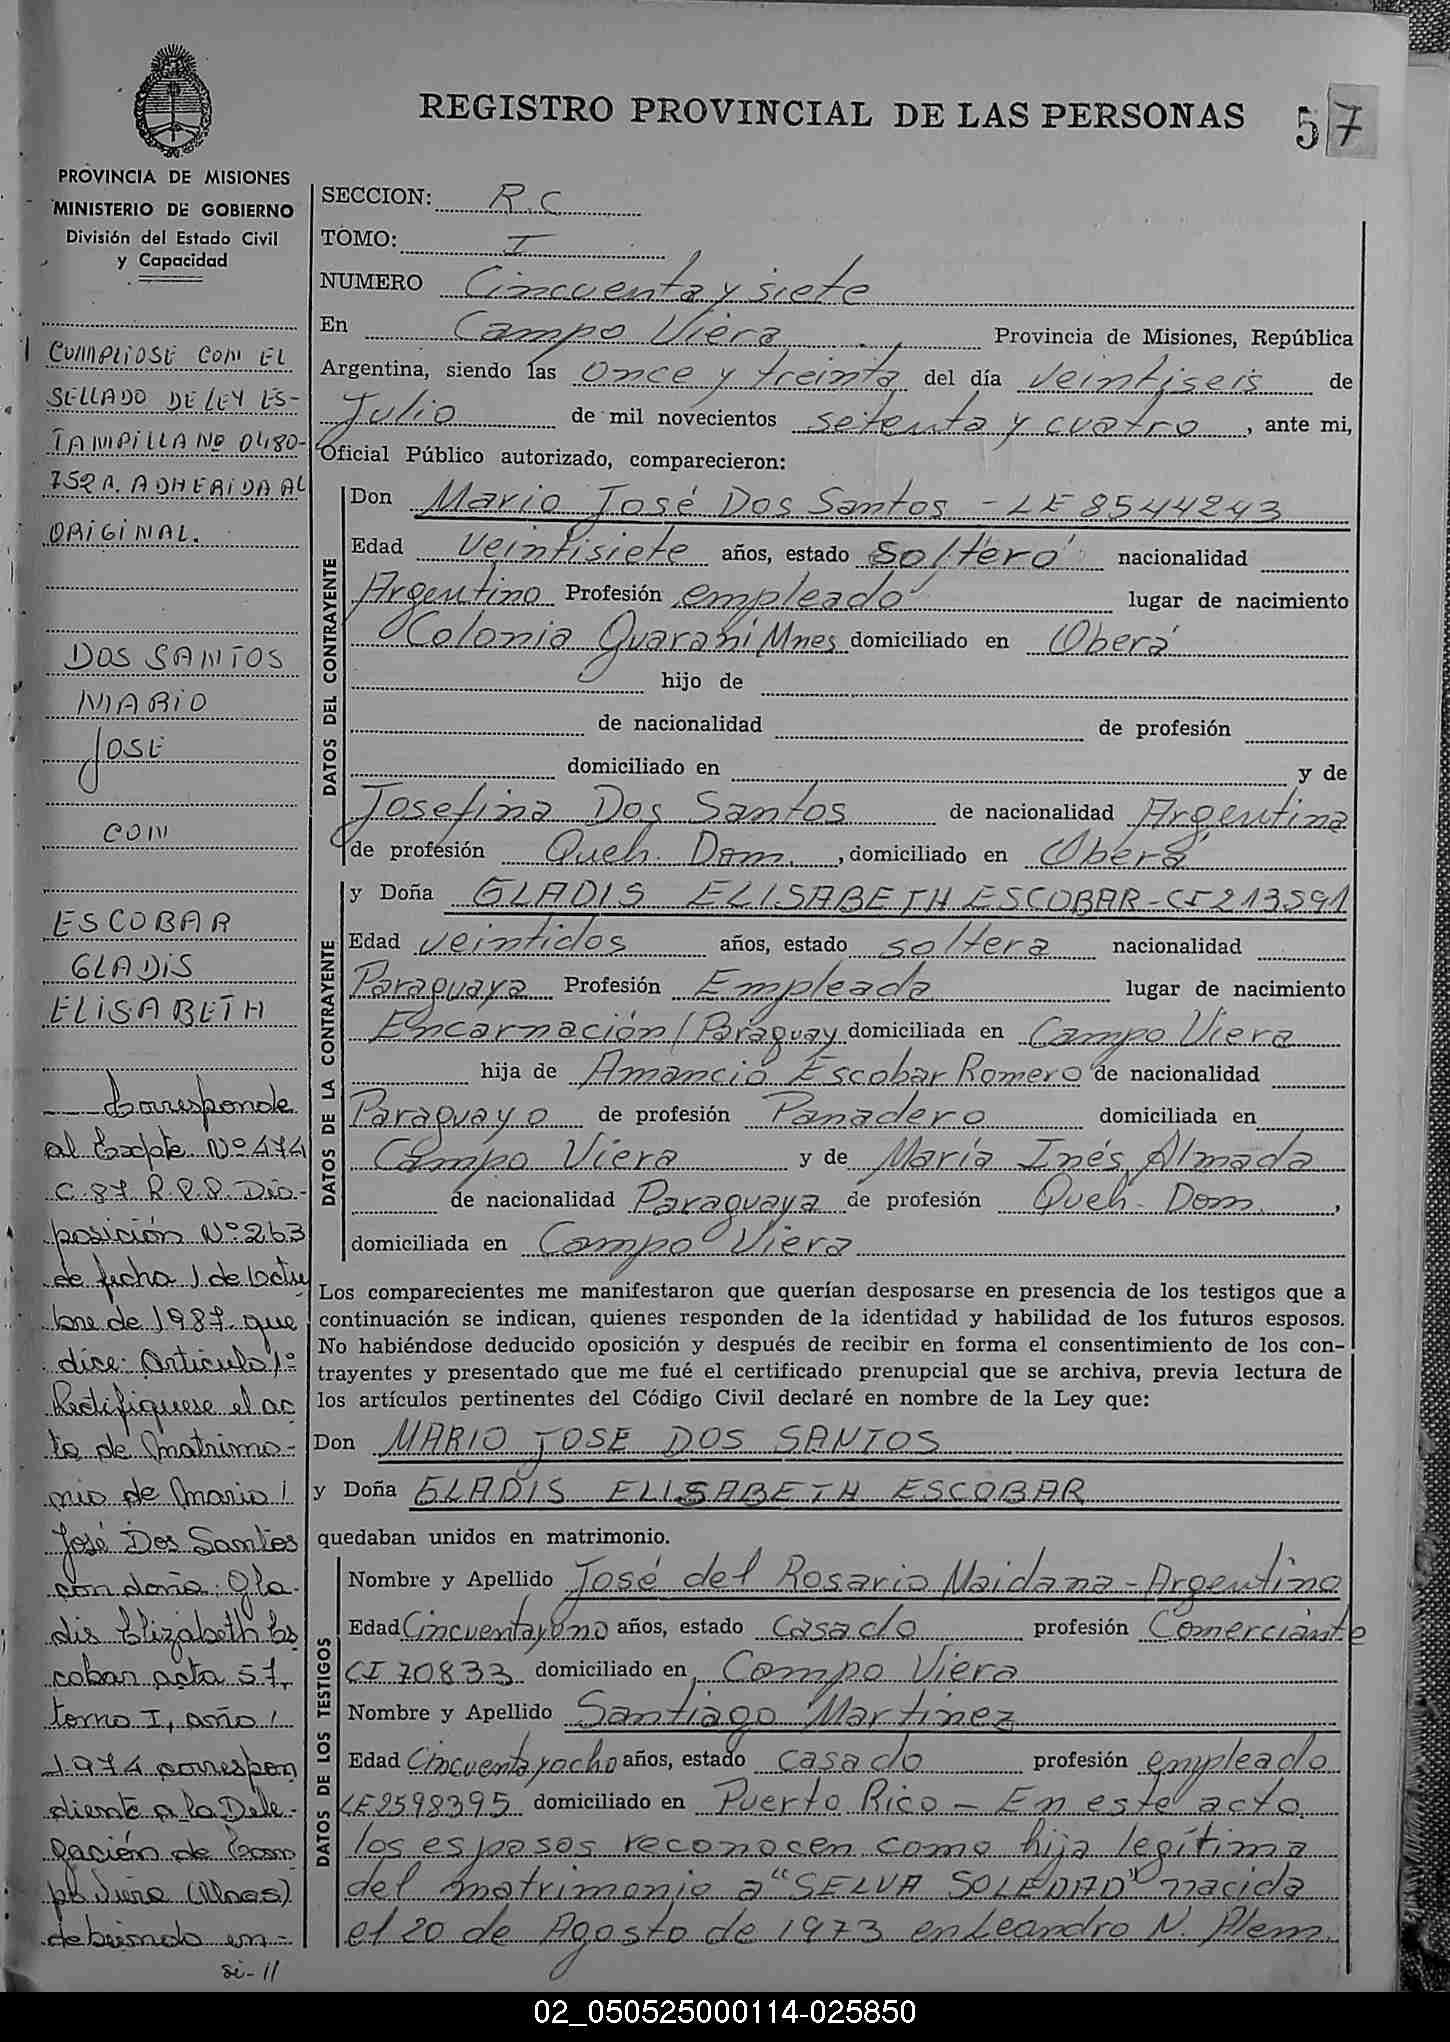 REGISTRO PROVINCIAL DE LAS PERSONAS
57
PROVINCIA DE MISIONES
MINISTERIO DE GOBIERNO
División del Estado Civil
y Capacidad
CUMPLIOSE CON EL
SELLADO DE LEY ES-
TAMPILLA Nº 0480-
752 A. ADHERIDA AL
ORIGINAL.
DOS SANTOS
MARIO
JOSE
CON
ESCOBAR
GLADIS
ELISABETH
Corresponde
al Expte. Nº 474
C. 87 R.P.P. Dis-
posición Nº 263
de fecha 1 de Octu
bre de 1987 que
dice: Artículo 1º
Rectifiquese el ac
ta de Matrimo-
nio de Mario
José Dos Santos
con doña: Gla-
dis Elizabeth Es
cobar acta 57,
tomo I, año
1974 correspon
diente a la Dele-
gación de Cam
po Viera (Mnes)
debiendo en-
SECCION: R.C
TOMO: I
NUMERO Cincuenta y siete
En Campo Viera Provincia de Misiones, República
Argentina, siendo las Once y treinta del día veintiseis de
Julio de mil novecientos setenta y cuatro, ante mi,
Oficial Público autorizado, comparecieron:
DATOS DEL CONTRAYENTE
Don Mario José Dos Santos - LE 8544243
Edad veintisiete años, estado soltero nacionalidad
Argentino Profesión empleado lugar de nacimiento
Colonia Guaraní Mnes domiciliado en Oberá
hijo de
de nacionalidad de profesión
domiciliado en y de
Josefina Dos Santos de nacionalidad Argentina
de profesión Queh. Dom., domiciliado en Oberá
DATOS DE LA CONTRAYENTE
y Doña GLADIS ELISABETH ESCOBAR - CI 213591
Edad veintidos años, estado soltera nacionalidad
Paraguaya Profesión Empleada lugar de nacimiento
Encarnación/Paraguay domiciliada en Campo Viera
hija de Amancio Escobar Romero de nacionalidad
Paraguayo de profesión Panadero domiciliada en
Campo Viera y de María Inés Almada
de nacionalidad Paraguaya de profesión Queh. Dom.,
domiciliada en Campo Viera
Los comparecientes me manifestaron que querían desposarse en presencia de los testigos que a
continuación se indican, quienes responden de la identidad y habilidad de los futuros esposos.
No habiéndose deducido oposición y después de recibir en forma el consentimiento de los con-
trayentes y presentado que me fué el certificado prenupcial que se archiva, previa lectura de
los artículos pertinentes del Código Civil declaré en nombre de la Ley que:
Don MARIO JOSE DOS SANTOS
y Doña GLADIS ELISABETH ESCOBAR
quedaban unidos en matrimonio.
DATOS DE LOS TESTIGOS
Nombre y Apellido José del Rosario Maidana - Argentino
Edad Cincuentayuno años, estado casado profesión Comerciante
CI 70833 domiciliado en Campo Viera
Nombre y Apellido Santiago Martinez
Edad Cincuentayocho años, estado casado profesión empleado
LE 2598395 domiciliado en Puerto Rico - En este acto
los esposos reconocen como hija legítima
del matrimonio a "SELVA SOLEDAD" nacida
el 20 de Agosto de 1973 en Leandro N. Alem.
02_050525000114-025850